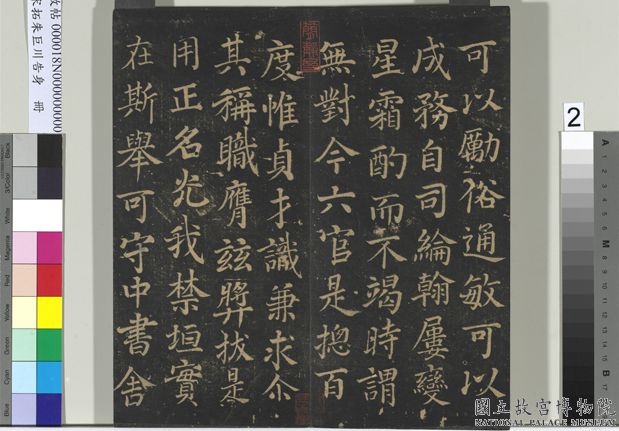 可以勵俗通敏可以
成務自司綸翰屢變
星霜酌而不竭時謂
無對今六官是揔百
度惟貞才識兼求尒
其稱職膺茲奬拔是
用正名光我禁垣實
在斯舉可守中書舍
宋拓朱巨川告身 冊
故帖 000018N000000000
2
Black
3/Color
White
Magenta
Red
Yellow
Green
Cyan
Blue
A
M
B
國立故宮博物院
NATIONAL PALACE MUSEUM